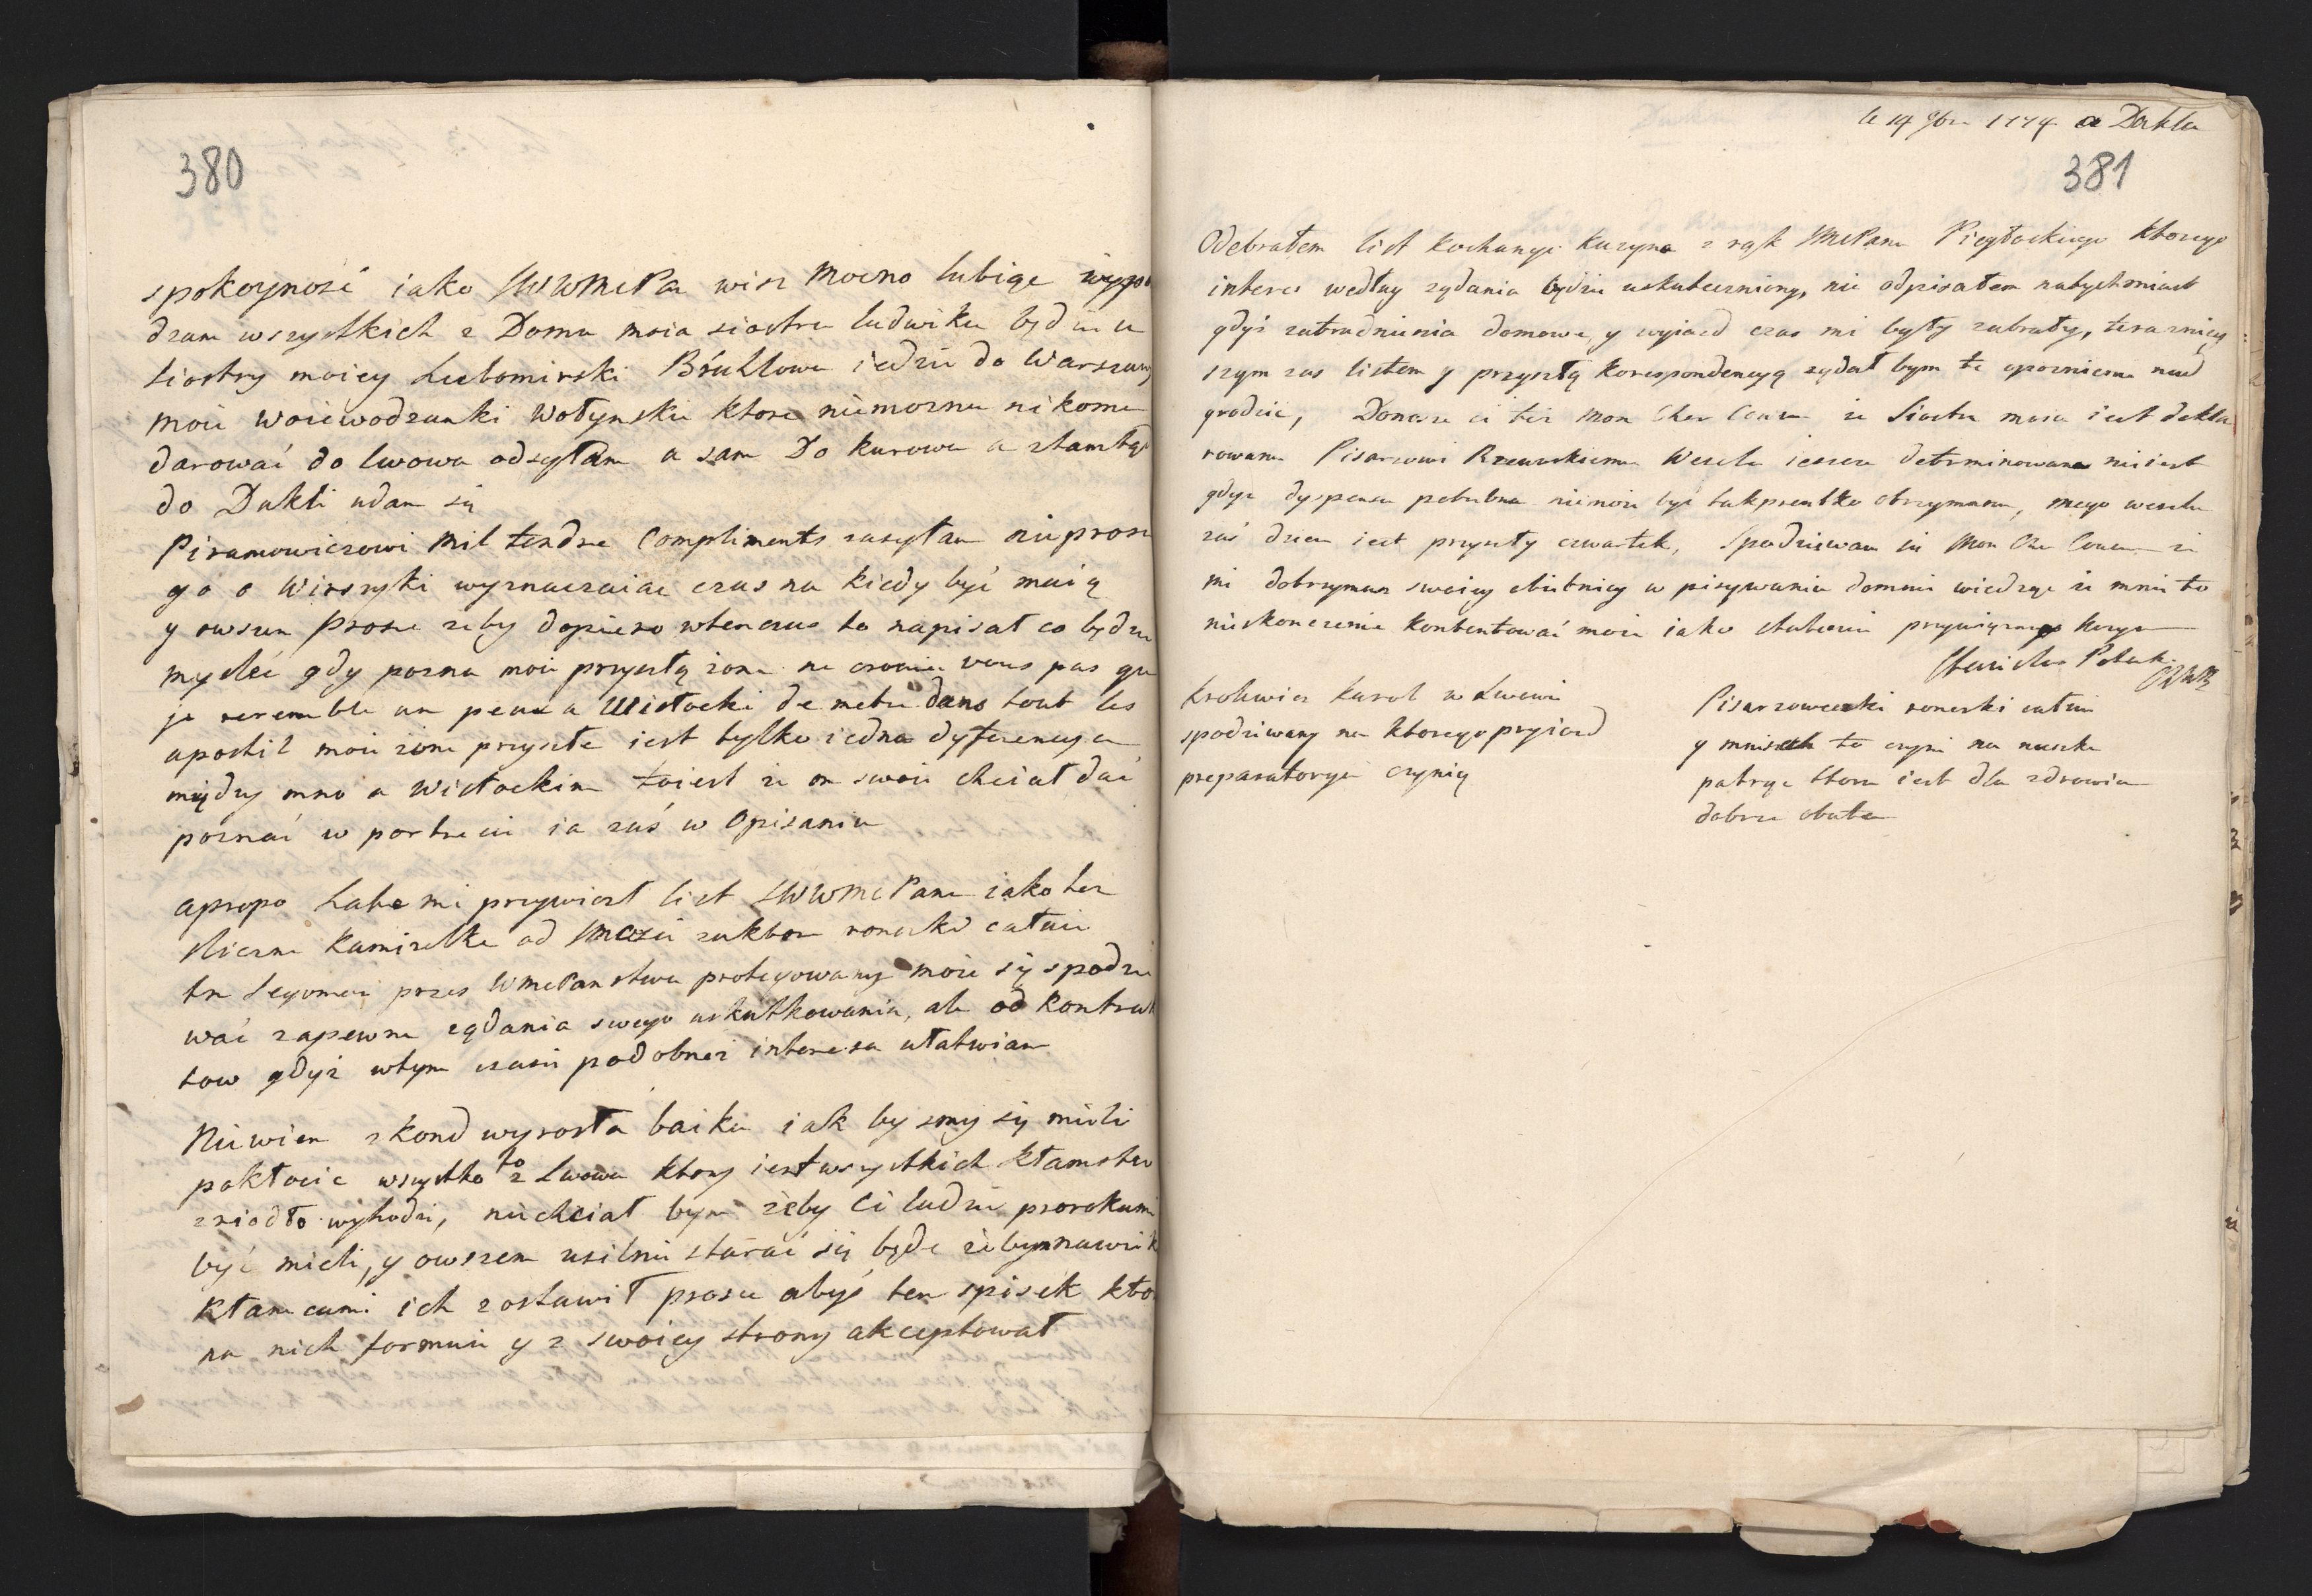 380
spokoynosć iako JWWMcPan wisz mocno lubiąc wypo
dzam wszystkich z Domu moia siostra ludwika będzie u
siostry moiey Lubomirski Brúhlowa iedzie do Warszawy
moie Woiewodzanki Wołynskie ktore niemozna nikomu
darować do lwowa odsyłam a sam Do kurowa a ztamtąd
do Dukli udam się
Piramowiczowi mil tendre Compliments zasyłam nieprosze
go o Wierszyki wyznaczaiac czas na kiedy być maią
y owszem Prosze zeby dopiero wtenczas to napisał co będzie
myslić gdy pozna moie przyszłą zone ne croiez vous pas que
je resemble un peu a Wisłocki de metre dans tout les
apostil moie zone przyszłe iest tylko iedna dyferencya
między mno a Wisłockim toiest ze on swoie chciał dać
poznać w portrecie ia zaś w Opisaniu
apropo Labe mi przywiozł list JWWMcPana iako tez
sliczna Kamizelke od Jmozci zaktore ronczki całuie
ten Jegomosć przez WmcPanstwa protegowany moze się spodzie
wać zapewne ządania swego uskutkowania, ale od Kontrak
tow gdyż wtym czasie podobnez interesa ułatwiam
Niewiem zkond wyrosła baika iak by smy się mieli
pokłocic wszystko to z Lwowa ktory iest wszystkich kłamstw
zriodło wyhodzi, niechciał bym żeby Ci ludzie prorokami
być mieli, y owszem usilnie starać się będe zebymnawiek
Kłamcami ich zostawił prosze abyś ten spisek kto
na nich formuie y z swoiey strony akceptował
le 14 9bre 1774 a Dukla
381
Odebrałem list kochanego kuzyna z rąk JmcPana Piegłockiego ktorego
interes według rządania będzie uskuteczniony, nie odpisałem natychmiast
gdyż zatrudnienia domowe y wyiazd czas mi były zabrały, terazniey
szym zas listem y przyszłą korespondencyą rządał bym te opoznienie nad
grodzic, Donosze ci tez mon Cher Cousin ze Siostra moia iest dekla
rowana Pisarzowi Rzewuskiemu Wesele ieszcze determinowane nieiest
gdyz dyspensa potrzebna niemoze być takprentko otrzymana, mego wesela
zaś dzien iest przyszły czwartek, Spodziewam sie Mon Cher Cousin ze
mi dotrzymasz swoiey obietnicy w pisywaniu domnie wiedząc ze mnie to
nieskonczenie kontentować moze iako statecznie przywiązanego kuzyna
Stanislas Potocki
Krolewicz Karol w Lwowie
spodziwany na ktorego przyiazd
preparatorya czynią
Pisarzoweczki ronczki całuie
y mnisech to czyni na nuszke
patrząc ktora iest dla zdrowia
dobrze obuta